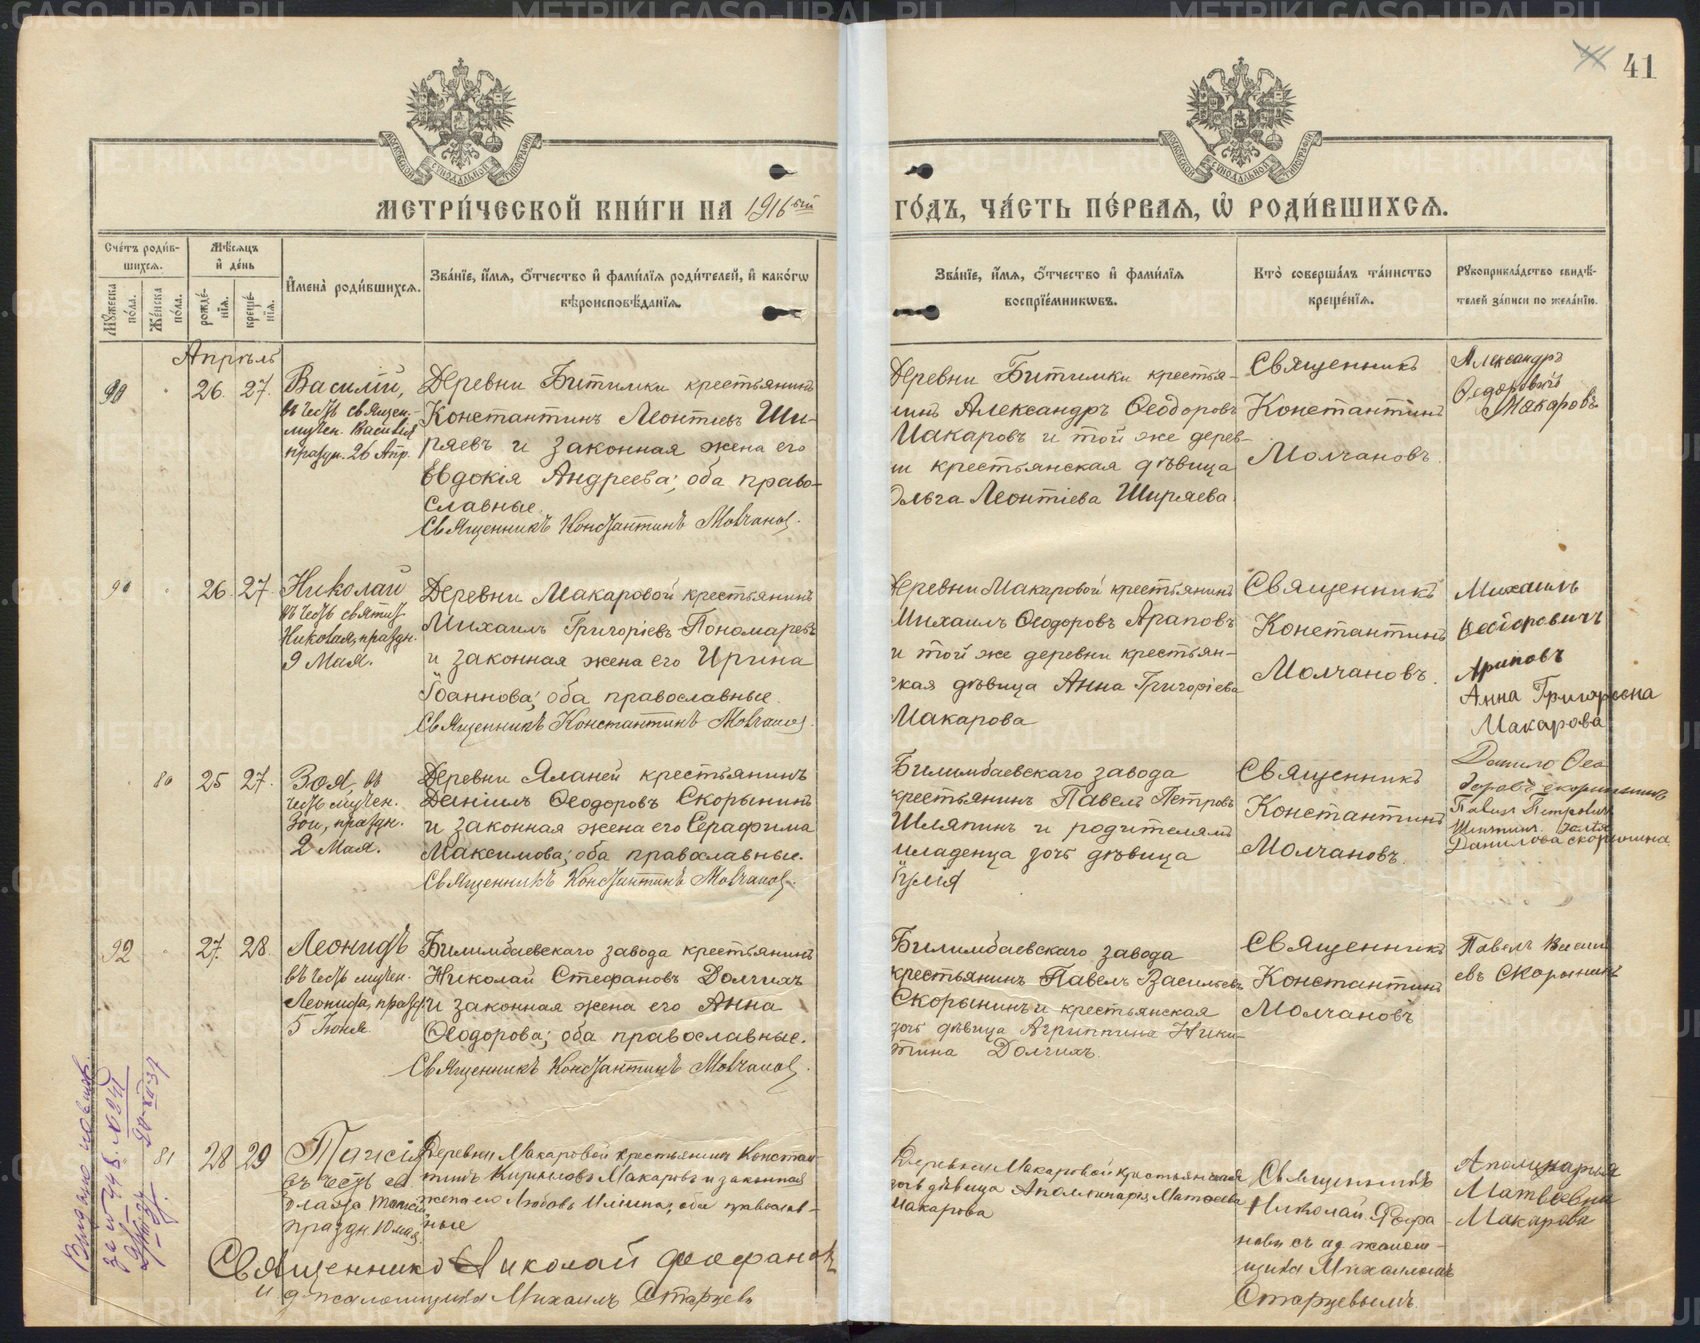 41
МЕТРИ́ЧЕСКОЙ КНИ́ГИ НА 1916ый ГО́ДЪ, ЧА́СТЬ ПЕ́РВАЯ, Ѡ РОДИ́ВШИХСЯ.
Сче́тъ роди́вшихся.
Мѣ́сяцъ и де́нь
Мꙋ́жеска по́ла.
Же́нска по́ла.
рожде́нїя.
креще́нїя.
И҆мена̀ роди́вшихся.
Зва́нїе, и҆́мя, ѻ҆́тчество и҆ фами́лїя роди́телей, и҆ како́гѡ
вѣроисповѣ́данїя.
Зва́нїе, и҆́мя, ѻ҆́тчество и҆ фами́лїя
воспрїе́мникѡвъ.
Кто̀ соверша́лъ та́инство
креще́нїя.
Рꙋкоприкла́дство свидѣ́-
телей за́писи по жела́нїю.
Апрѣль
90 26. 27.
Василій,
въ честь священ.-
мучен. Василія
праздн. 26 Апр.
Деревни Битимки крестьянинъ
Константинъ Леонтіевъ Ши-
ряевъ и законная жена его
Евдокія Андреева; оба право-
славные.
Священникъ Константинъ Молчановъ.
Деревни Битимки крестья-
нинъ Александръ Ѳеодоровъ
Макаровъ и той же дерев-
ни крестьянская дѣвица
Ольга Леонтіева Ширяева.
Священникъ
Константинъ
Молчановъ.
Александръ
Ѳедоровичъ
Макаровъ
26. 27.
Николай
въ честь святит.
Николая, праздн.
9 Мая.
Деревни Макаровой крестьянинъ
Михаилъ Григоріевъ Пономаревъ
и законная жена его Ирина
Іоаннова; оба православные.
Священникъ Константинъ Молчановъ.
Деревни Макаровой крестьянинъ
Михаилъ Ѳеодоровъ Араповъ
и той же деревни крестьян-
ская дѣвица Анна Григоріева
Макарова
Священникъ
Константинъ
Молчановъ.
Михаилъ
Ѳеодоровичъ
Араповъ
Анна Григорьевна
Макарова
80 25 27.
Зоя, въ
честь мучен.
Зои, праздн.
2 Мая.
Деревни Яланей крестьянинъ
Даніилъ Ѳеодоровъ Скорынинъ
и законная жена его Серафима
Максимова; оба православные.
Священникъ Константинъ Молчановъ.
Билимбаевскаго завода
крестьянинъ Павелъ Петровъ
Шляпинъ и родителямъ
младенца дочь дѣвица
Юлія
Священникъ
Константинъ
Молчановъ.
Данило Ѳео
доровъ Скорынинъ
Павелъ Петровичъ
Данилова Скорынина
92 27. 28.
Леонидъ
въ честь мучен.
Леонида, праздн.
5 Іюня.
Билимбаевскаго завода крестьянинъ
Николай Стефановъ Долгихъ
и законная жена его Анна
Ѳеодорова; оба православные.
Священникъ Константинъ Молчановъ.
Билимбаевскаго завода
крестьянинъ Павелъ Васильевъ
Скорынинъ и крестьянская
дочь дѣвица Агриппина Ники-
тина Долгихъ.
Священникъ
Константинъ
Молчановъ
Павелъ Васил
евъ Скорынинъ
81 28 29
Таисія
въ честь св
блаж Таисіи
праздн 10 мая.
Деревни Макаровой крестьянинъ Констан-
тинъ Кирилловъ Макаровъ и законная
жена его Любовь Ильина; оба православ-
ные
Священникъ Николай Феофановъ
и д псаломщика Михаилъ Старцевъ
Деревни Макаровой крестьянская
дочь дѣвица Аполлинарія Матѳеева
Макарова
Священникъ
Николай Феофа
новъ съ ид псалом-
щика Михаиломъ
Старцевымъ.
Аполинария
Матвеевна
Макарова